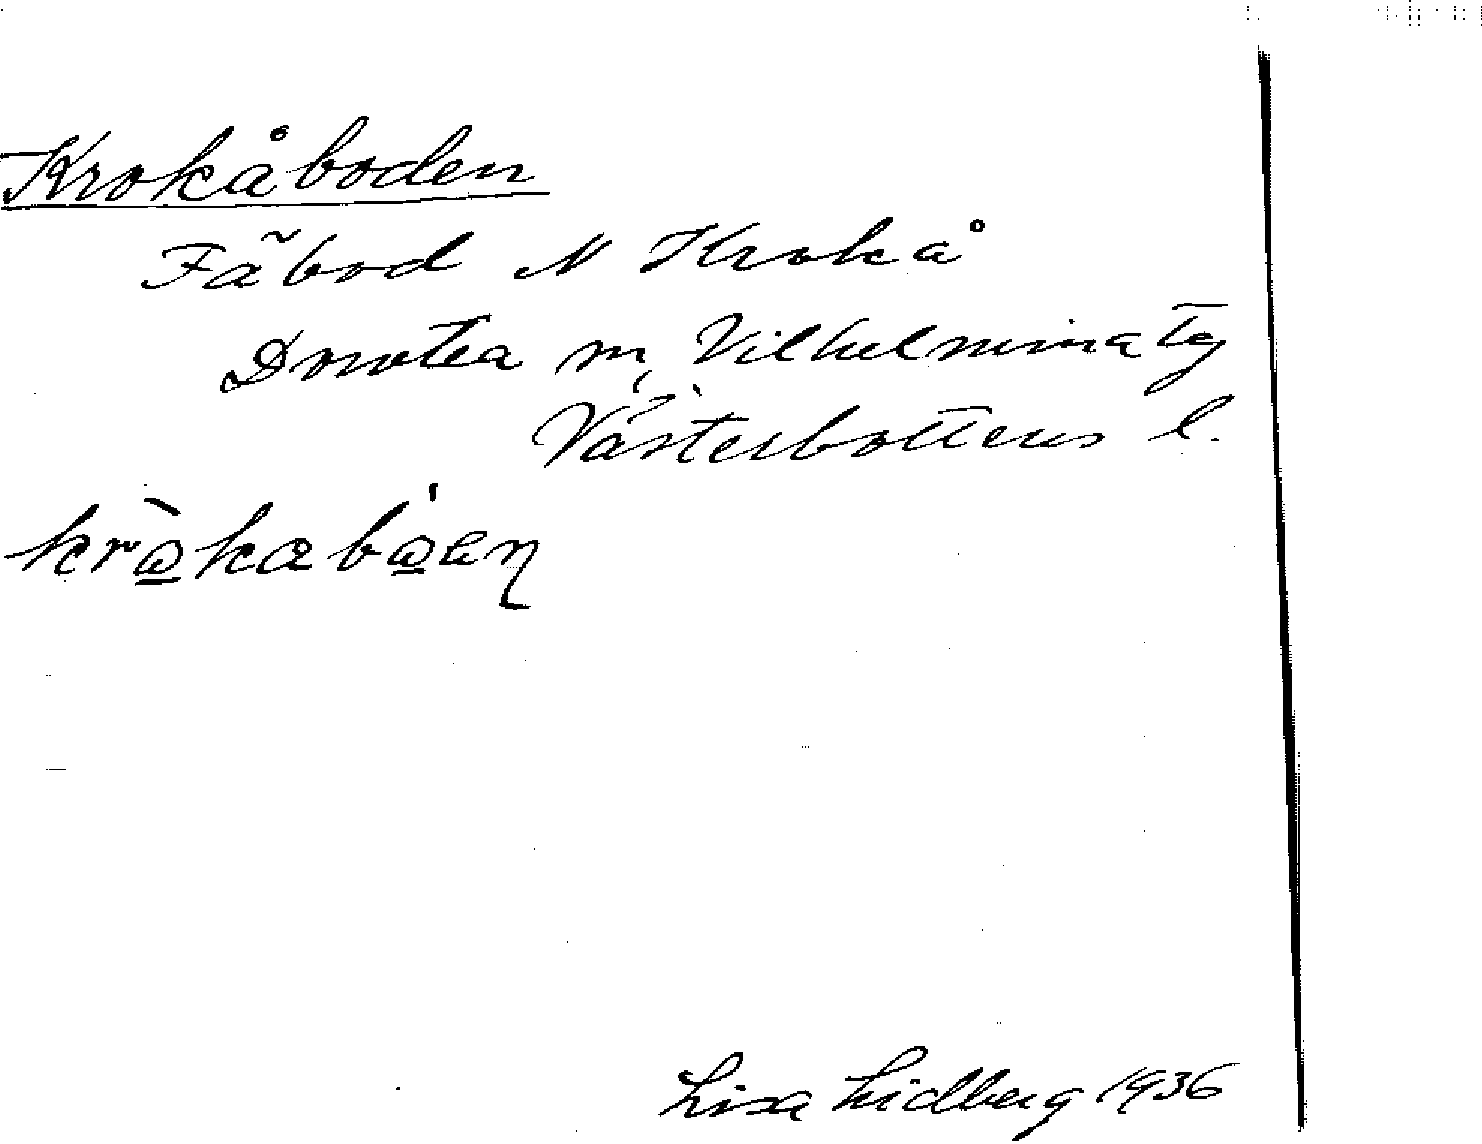 Krokåboden
Fäbod N Krokå
Dorotea sn, Vilhelmina tg
Västerbottens l.
krò̱kabò̱en̦
Lisa Lidberg 1936